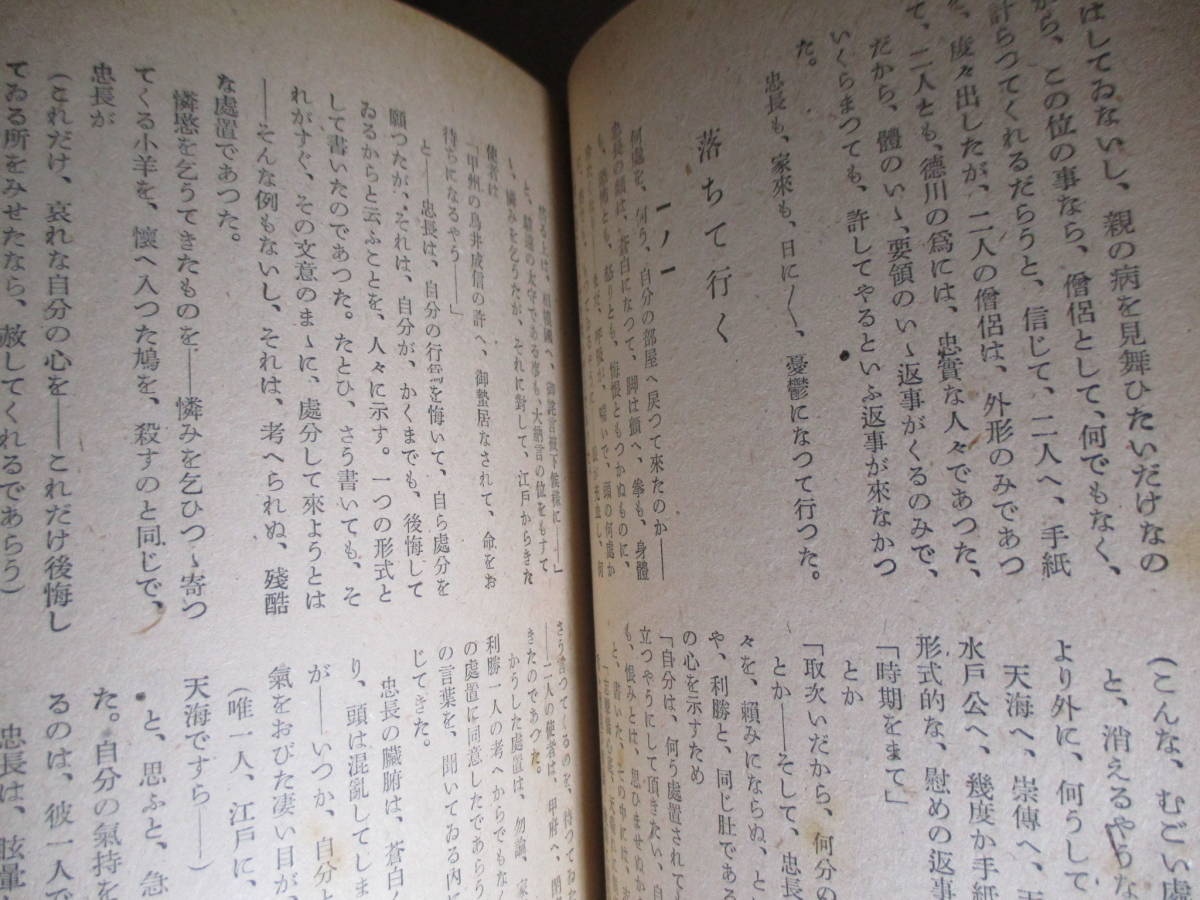 はしてゐないし、親の病を見舞ひたいだけなの
から、この位の事なら、僧侶として、何でもなく、
計らつてくれるだらうと、信じて、二人へ、手紙
を、度々出したが、二人の僧侶は、外形のみであつ
て、二人とも、德川の爲には、忠實な人々であつた、
だから、體のいゝ、要領のいゝ返事がくるのみで、
いくらまつても、許してやるといふ返事が來なかつ
た。
忠長も、家來も、日に〱、憂鬱になつて行つた。
落ちて行く
一ノ一
何處を、何う、自分の部屋へ戻つて來たのか――
忠長の顏は、蒼白になつて、脚は顫へ、拳も、身體
(こんな、むごい處
と、消えるやうな
より外に、何うして
天海へ、崇傳へ、天
水戸公へ、幾度か手紙
形式的な、慰めの返事
「時期をまて」
とか
「取次いだから、何分の
とか――そして、忠長
々を、賴みにならぬ、と
や、利勝と、同じ肚である
の心を示すため
「自分は、何う處置されても
立つやうにして頂きたい、自
も、恨みとは、思ひませぬか
と、書いた。その中には、
と、駿遠の太守である事も、大納言の位をもすて
も、憐みを乞うたが、それに對して、江戸からきた
使者は
「甲州の鳥井成信の許へ、御蟄居なされて、命をお
待ちになるやう――」
と――忠長は、自分の行爲を悔いて、自ら處分を
願つたが、それは、自分が、かくまでも、後悔して
ゐるからと云ふことを、人々に示す。一つの形式と
して書いたのであつた。たとひ、さう書いても、そ
れがすぐ、その文意のまゝに、處分して來ようとは
――そんな例もないし、それは、考へられぬ、殘酷
な處置であつた。
憐愍を乞うてきたものを――憐みを乞ひつゝ寄つ
てくる小羊を、懷へ入つた鳩を、殺すのと同じで、
忠長が
(これだけ、哀れな自分の心を――これだけ後悔し
てゐる所をみせたなら、赦してくれるであらう)
さう言つてくるのを、待つてゐた
――二人の使者は、甲府へ、
きたのであつた。
かうした處置は、勿論、家
利勝一人の考へからでもなく
の處置に同意したであらう
の言葉を、聞いてゐる内に
じてきた。
忠長の臟腑は、蒼白く
り、頭は混亂してしま
が――いつか、自分と
氣をおびた凄い目が、
(唯一人、江戸に、
天海ですら――)
と、思ふと、急
た。自分の氣持を
るのは、彼一人で
忠長は、眩暈